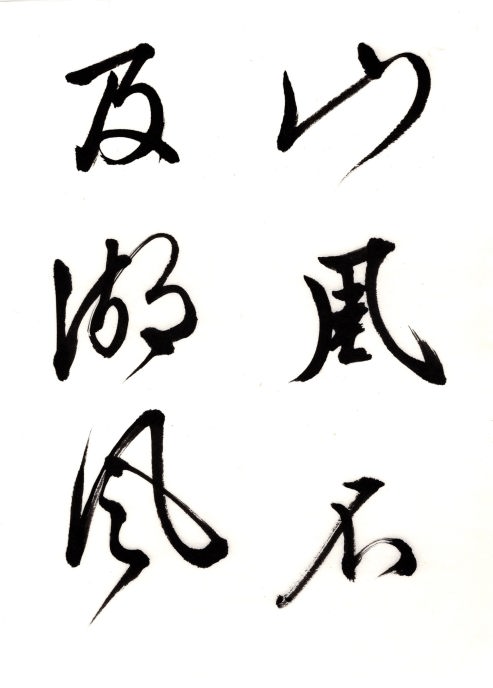 山風不
及湖風